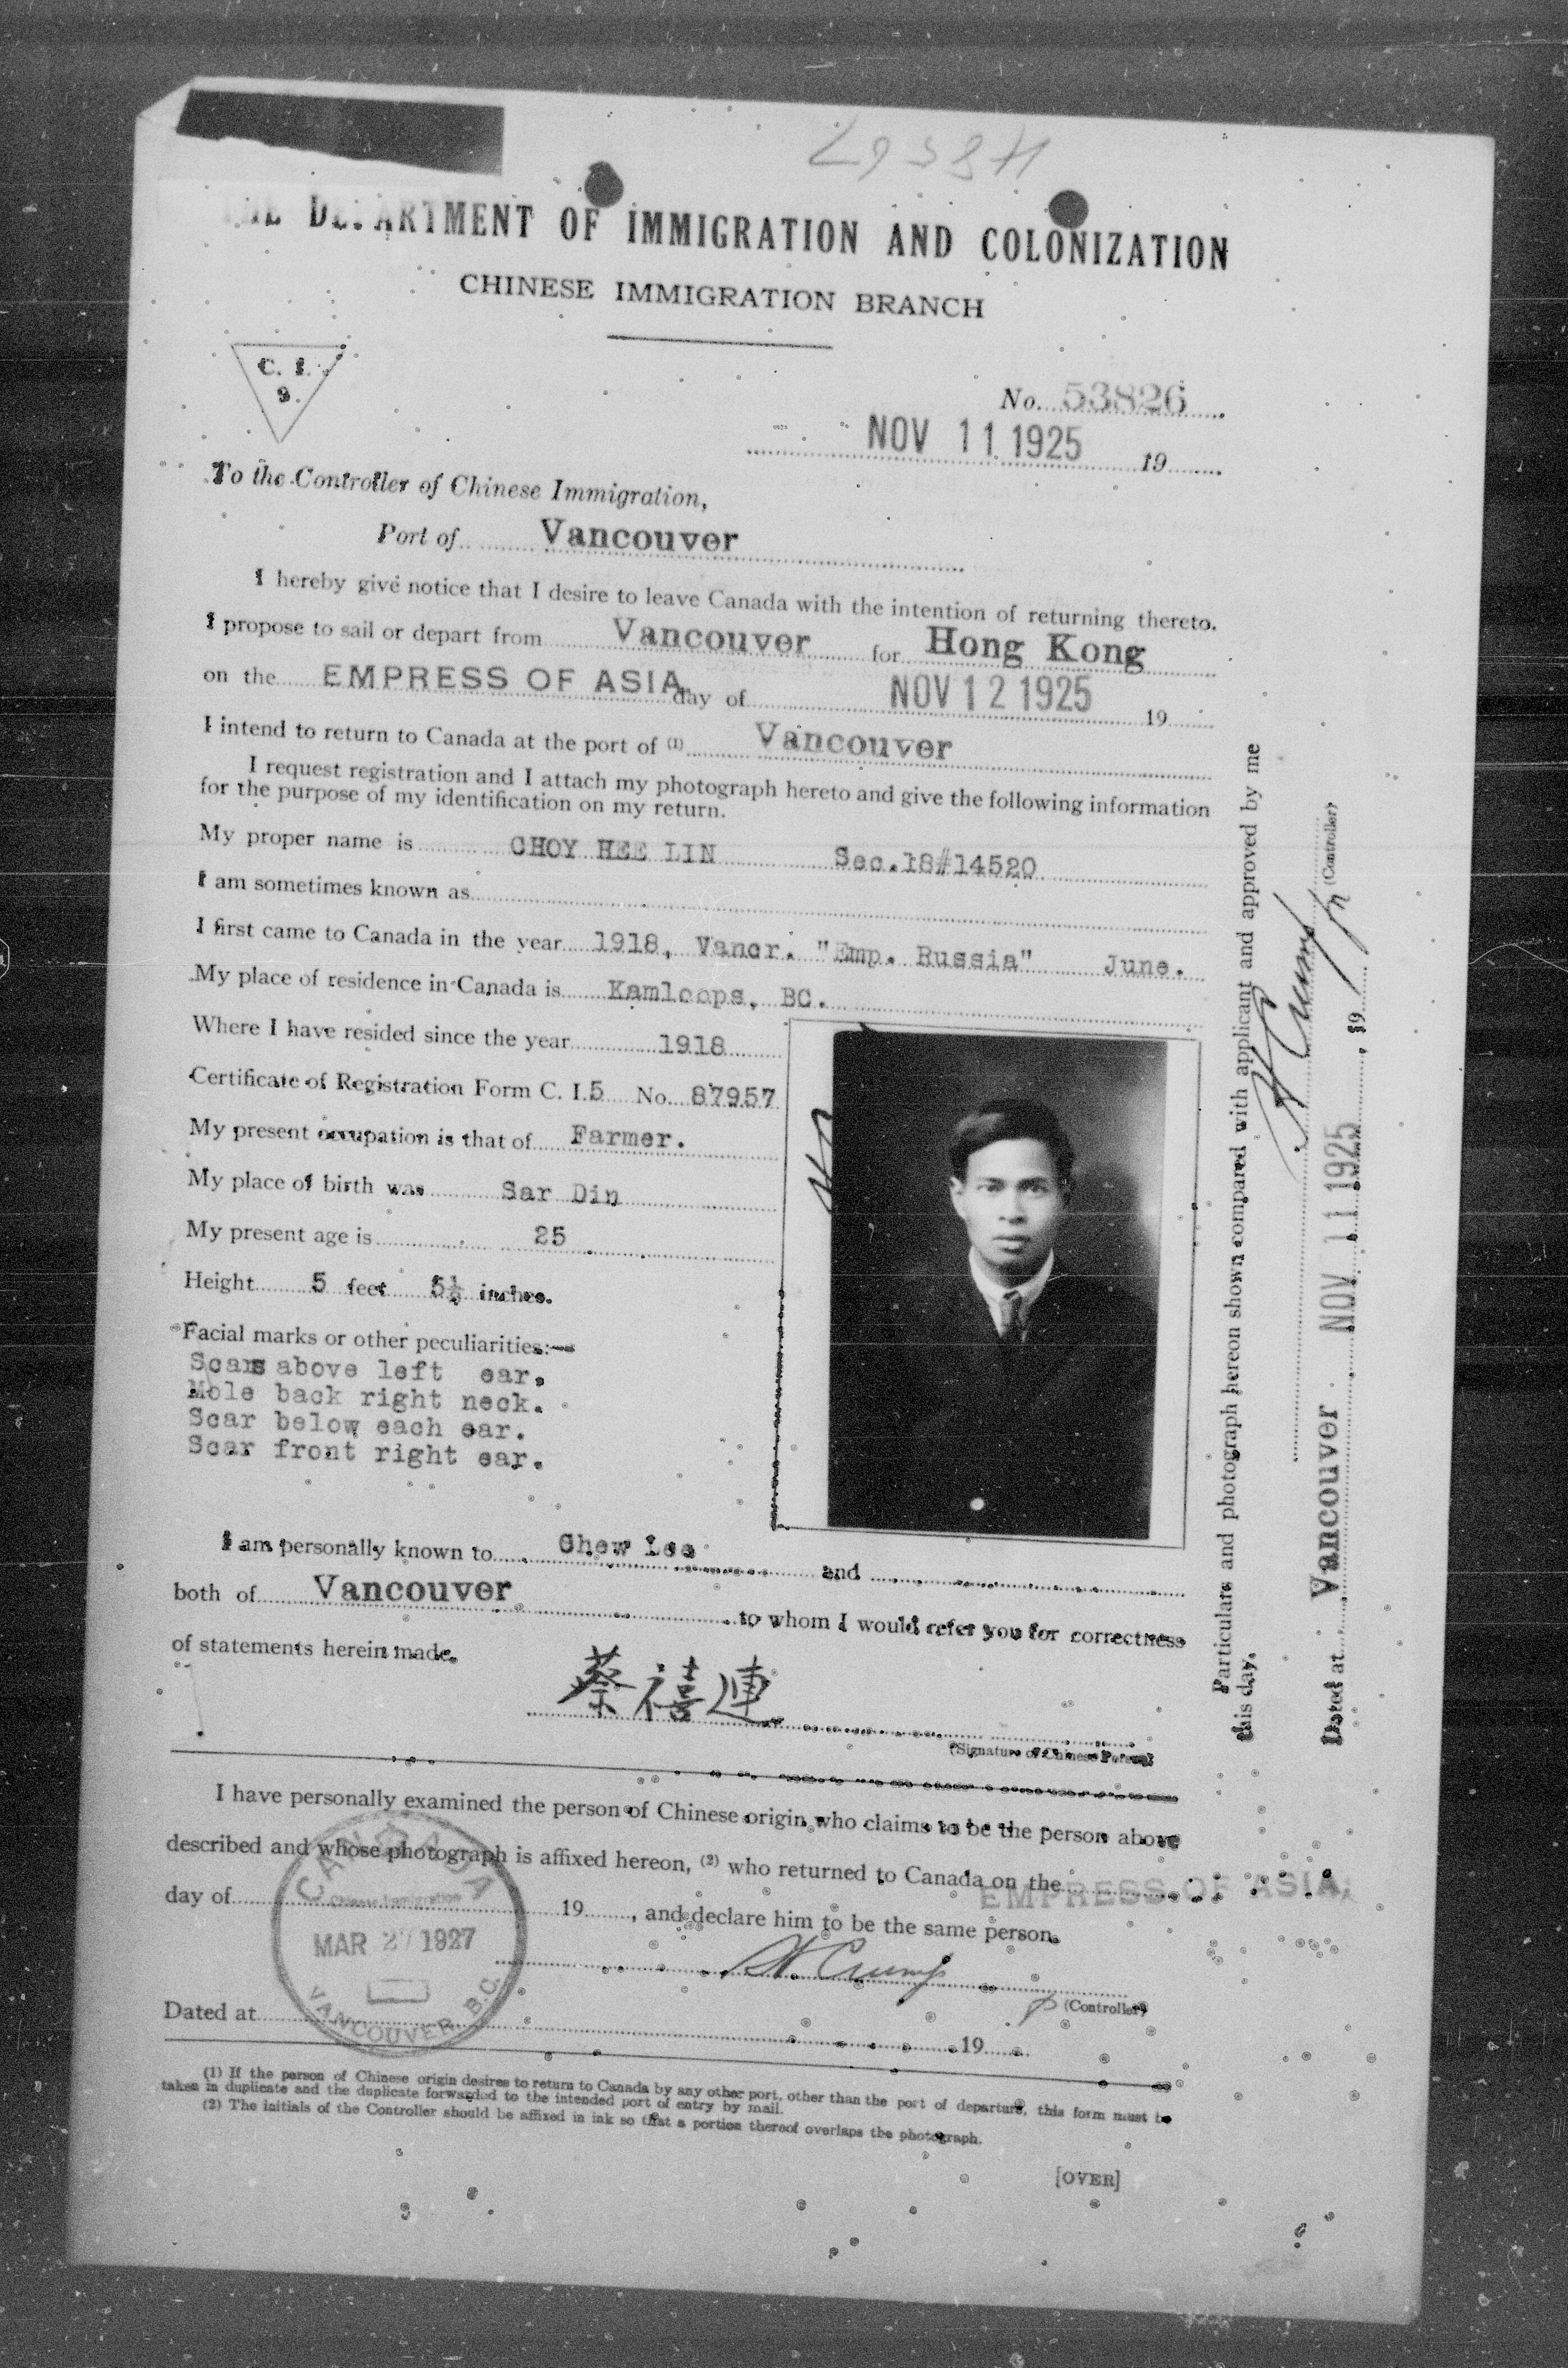 DEPARTMENT OF IMMIGRATION AND COLONIZATION
CHINESE IMMIGRATION BRANCH
C. I.
9.
No. 53826
NOV 11 1925 19
To the Controller of Chinese Immigration,
Port of Vancouver
I hereby give notice that I desire to leave Canada with the intention of returning thereto.
I propose to sail or depart from Vancouver for Hong Kong
on the EMPRESS OF ASIA day of NOV 12 1925 19
I intend to return to Canada at the port of (1) Vancouver
I request registration and I attach my photograph hereto and give the following information
for the purpose of my identification on my return.
My proper name is CHOY HEE LIN Sec.18#14520
I am sometimes known as
I first came to Canada in the year 1918, Vancr. "Emp. Russia" June.
My place of residence in Canada is Kamloops, BC.
Where I have resided since the year 1918
Certificate of Registration Form C. I.5 No. 87957
My present occupation is that of Farmer.
My place of birth was Sar Din
My present age is 25
Height 5 feet 5½ inches.
Facial marks or other peculiarities:—
Scars above left ear.
Mole back right neck.
Scar below each ear.
Scar front right ear.
I am personally known to Chew Lee and
both of Vancouver to whom I would refer you for correctness
of statements herein made.
蔡禧連
(Signature of Chinese Person)
I have personally examined the person of Chinese origin who claims to be the person above
described and whose photograph is affixed hereon, (2) who returned to Canada on the
EMPRESS OF ASIA
day of 19 , and declare him to be the same person.
CANADA
Chinese Immigration
MAR 27 1927
VANCOUVER B.C.
Crump
(Controller)
Dated at 19
(1) If the person of Chinese origin desires to return to Canada by any other port, other than the port of departure, this form must be
taken in duplicate and the duplicate forwarded to the intended port of entry by mail.
(2) The initials of the Controller should be affixed in ink so that a portion thereof overlaps the photograph.
[OVER]
Particulars and photograph hereon shown compared with applicant and approved by me
this day.
Crump
(Controller)
Dated at Vancouver NOV 11 1925, 19